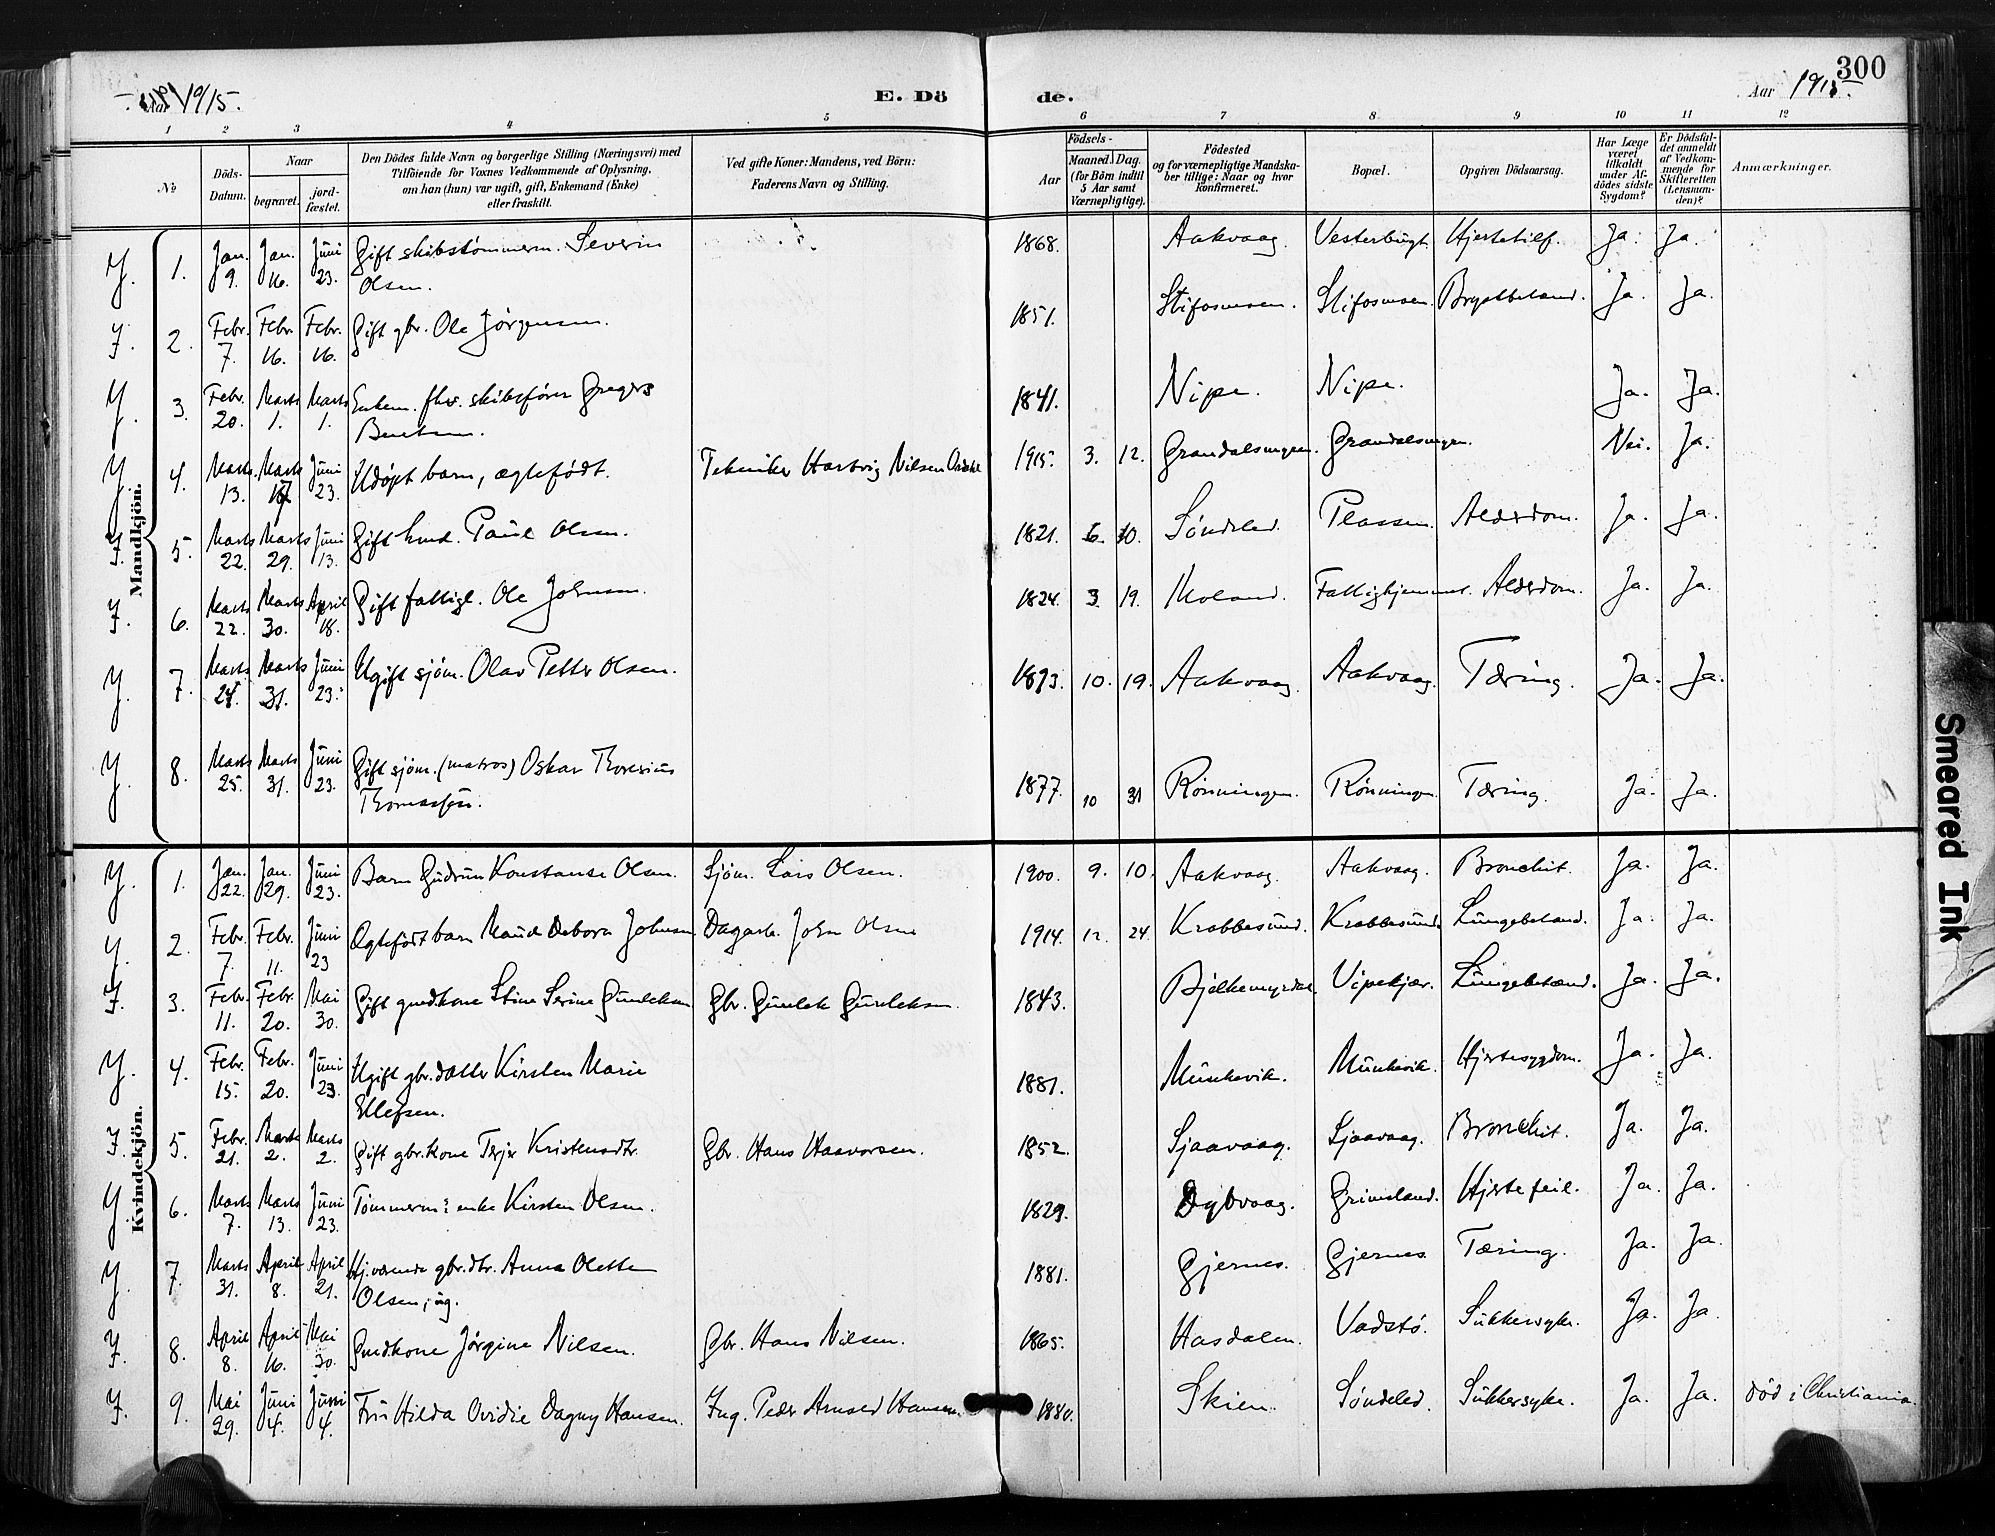 Aar 1915.
E. Dö
de.
Aar 1915.
300
1 2 3 4 5 6 7 8 9 10 11 12
№
Döds-Datum.
Naar
begravet.
jord-fæstet.
Den Dödes fulde Navn og borgerlige Stilling (Næringsvei) med
Tilföiende for Voxnes Vedkommende af Oplysning,
om han (hun) var ugift, gift, Enkemand (Enke)
eller fraskilt.
Ved gifte Koner: Mandens, ved Börn:
Faderens Navn og Stilling.
Födsels-
Aar
Maaned. Dag.
(for Börn indtil
5 Aar samt
Værnepligtige).
Födested
og for værnepligtige Mandska-
ber tillige: Naar og hvor
konfirmeret.
Bopæl.
Opgiven Dödsaarsag.
Har Læge
været
tilkaldt
under Af-
dödes sidste
Sygdom?
Er Dödsfal-
det anmeldt
af Vedkom-
mende for
Skifteretten
(Lensman-
den)?
Anmærkninger.
Mandkjön.
1. Jan. 9. Jan. 16. Juni 23. Gift skibstømmerm. Severin Olsen. 1868. Aakvaag. Vesterbugt. Hjertetilf. Ja. Ja.
2. Febr. 7. Febr. 16. Febr. 16. Gift gbr. Ole Jørgensen. 1851. Stifosmoen. Stifosmoen. Brystbetænd. Ja. Ja.
3. Febr. 20. Marts 1. Marts 1. Enkem. fhv. skibsfører Gregers Bentsen. 1841. Nipe. Nipe. Ja. Ja.
4. Marts 13. Marts 17 Juni 23. Udøpt barn, ægtefødt. Tekniker Hartvig Nilsen 1915. 3. 12. Grandalsmyren. Grandalsmyren. Nei. Ja.
5. Marts 22. Marts 29. Juni 13. Gift husm. Paul Olsen. 1821. 6. 30. Søndeled. Plassen. Alderdom. Ja. Ja.
6. Marts 22. Marts 30. April 18. Gift fattigl. Ole Johnsen. 1824. 3. 19. Moland. Fattighjemmet. Alderdom. Ja. Ja.
7. Marts 24. Marts 31. Juni 23. Ugift sjøm. Olav Petter Olsen. 1893. 10. 19. Aakvaag. Aakvaag. Tæring. Ja. Ja.
8. Marts 25. Marts 31. Juni 23. Gift sjøm. (matros) Oskar Thoresius Thomassen. 1877. 10 31 Rønningen. Rønningen. Tæring. Ja. Ja.
Kvindekjön.
1. Jan. 22. Jan. 29. Juni 23. Barn Gudrun Konstanse Olsen. Sjøm. Lars Olsen. 1900. 9. 10. Aakvaag. Aakvaag. Bronchit. Ja. Ja.
2. Febr. 7. Febr. 11. Juni 23 Ægtefødt barn Maud Debora Johnsen Dagarb. John Olsen 1914. 12. 24. Krabbesund. Krabbesund. Lungebetænd. Ja. Ja.
3. Febr. 11. Febr. 20. Mai 30. Gift gmdkone Stine Serine Gunleksen Gbr. Gunlek Gunleksen. 1843. Bjelkemyrdal. Vipekjær. Lungebetænd. Ja. Ja.
4. Febr. 15. Febr. 20. Juni 23. Ugift gbr.datter Kirsten Marie Ellefsen. 1881. Munkevik. Munkevik. Hjertesygdom. Ja. Ja.
5. Febr. 21. Marts 2. Marts 2. Gift gbr.kone Terjer Kristensdtr. Gbr. Hans Haavorsen. 1852. Sjaavaag. Sjaavaag. Bronchit. Ja. Ja.
6. Marts 7. Marts 13. Juni 23. Tømmerm: enke Kirsten Olsen. 1829. Dybvaag. Grimsland. Hjertefeil. Ja. Ja.
7. Marts 31. April 8. April 21. Hj.værende gbr.dtr. Anna Olette Olsen, ug. 1881. Gjernes. Gjernes. Tæring. Ja. Ja.
8. April 8. April 16. Mai 30. Gmdkone Jørgine Nilsen. Gbr. Hans Nilsen. 1865. Hasdalen. Vadstø. Sukkersyke. Ja. Ja.
9. Mai 29. Juni 4. Juni 4. Fru Hilda Ovidie Dagny Hansen. Ing. Peder Arnold Hansen. 1880. Skien. Søndeled. Sukkersyke. Ja. Ja. død i Christiania.
Smeared Ink